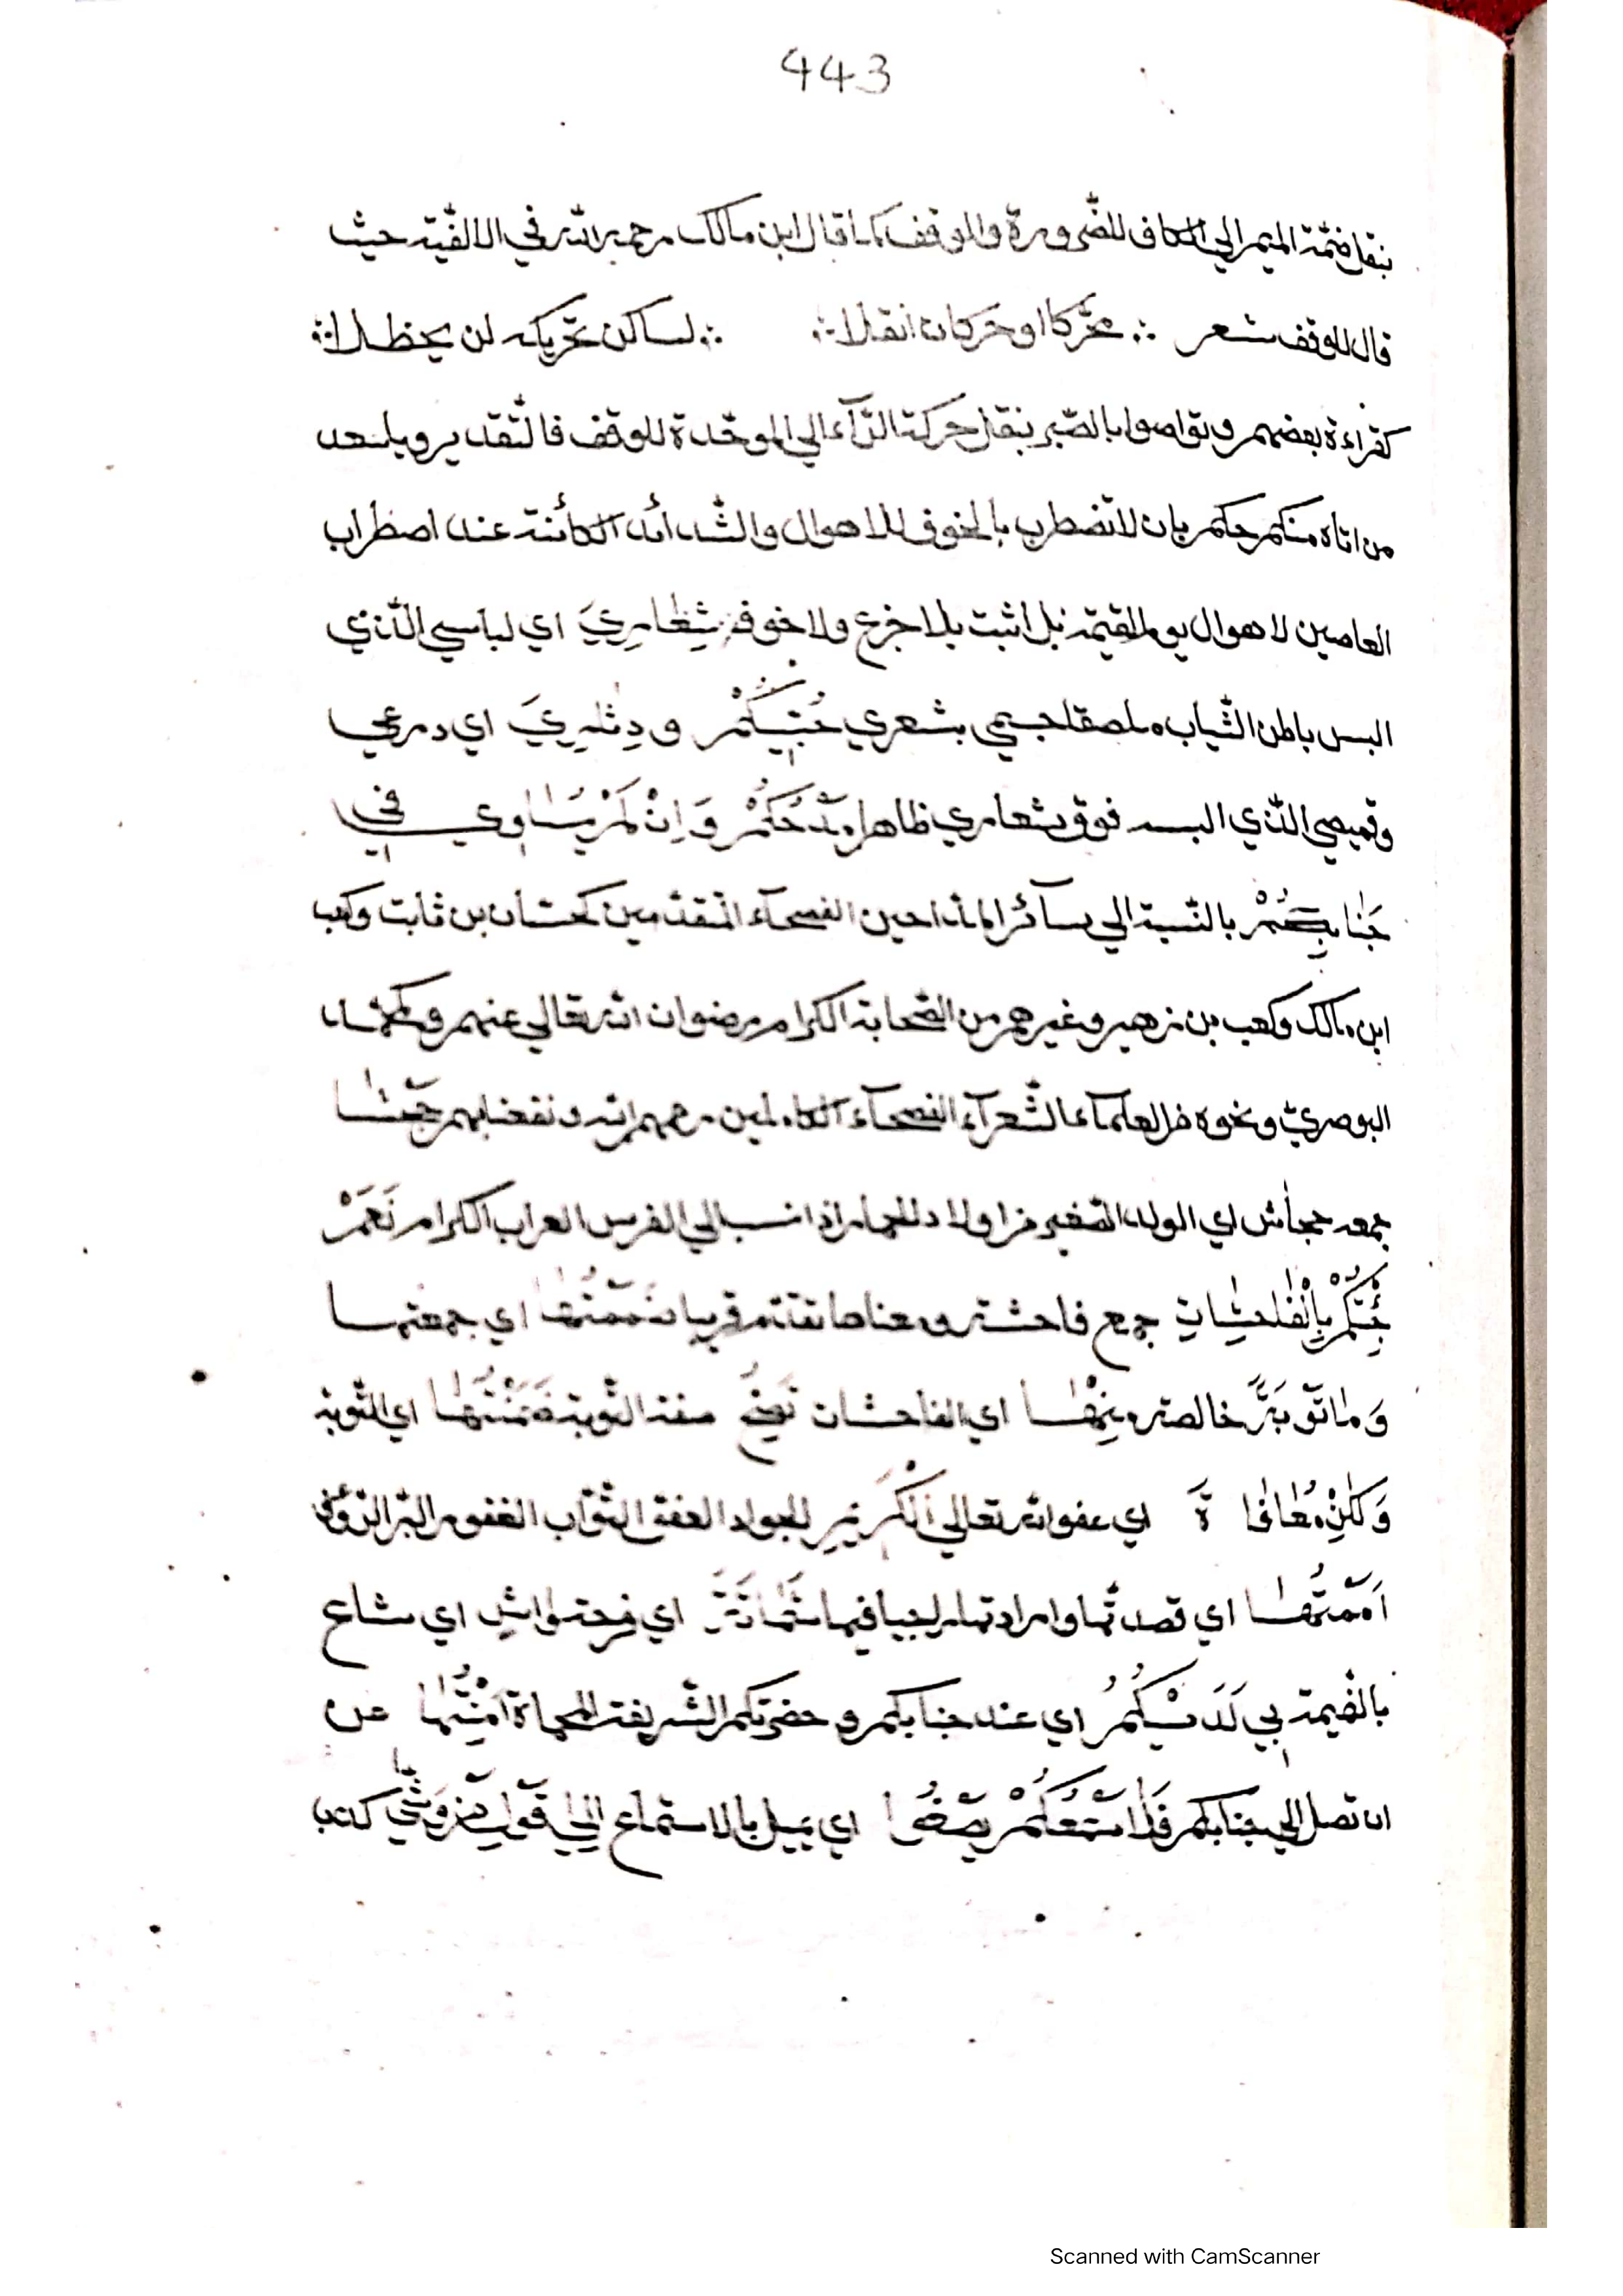 443
بنقل ضمّة الميم الي الكاف للضّرورة والوقف كما قال ابن مالك رحمه الله في الالفيّة حيث
قال للوقف شعر ∴ محرّكا او حركات انقلا ∴ ∴ لساكن تحريكه لن يحظلا ∴
كقراءة بعضهم وتواصوا بالصّبر بنقل حركة الرّآء الي الموحّدة للوقف فالتّقدير ويلسعد
من اتاه منكم حكم بان لا تضطرب بالخوف للاهوال والشّدائد الكائنة عند اضطراب
العاصين لاهوال يوم القيٰمة بل اثبت بلا جزع ولا خوف شِعَارِيَ اي لباسي الّذي
البس باطن الثّياب ملصقا جسمي بشعري حُبّيكُمْ و دِثٰرِيَ اي درعي
وقميصي الّذي البسه فوق شعاري ظاهرا مَدْحُكُمْ وَاِنْ لَمْ يُسَاوِي فِي
جَنَابِكُمْ بالنّسبة الي سآئر المادحين الفصحآء المتقدّمين كحسّان بن ثابت وكعب
ابن مالك وكعب بن زهير وغيرهم من الصّحابة الكرام رضوان الله تعالي عنهم وكمحمّد
البوصريّ ونحوه من العلمآء الشّعرآء الفصحآء الكاملين رحمهم الله ونفعنا بهم جَحْشًا
جمعه جحاش اي الولد الصّغير من اولاد الحمار اذا نسب الي الفرس العراب الكرام نَعَمْ
جِئْتُكُمْ بِالْفٰحِشَاتِ جمع فاحشة ومعناها تقدّم قريبا ضَمَمْتُهَا اي جمعتها
وَمَا تَوْبَةٌ خالصة مِنْهَا اي الفاحشات نَصُوحٌ صفة التّوبة ضَمَنْتُهَا اي التّوبة
وَلٰكِنْ مُعَافَاةَ اي عفو الله تعالي الْكَرِيْمِ الجواد العفوّ التّوّاب الغفور البرّ الرّؤف
اَمَّمْتُهَا اي قصدتّها وارادتها راجيا فيها شَمَاتَةَ اي فرحة وَاشٍ اي ساع
بالنّميمة بي لَدَيْكُمُ اي عند جنابكم وحضرتكم الشّريفة المحماة اَمِنْتُهَا عن
ان تصل الي جنابكم فَمَا سَمْعُكُمْ يَصْغَي اي يميل بالاستماع اِلَي قَوْلِ مَنْ وَشَي كذبا
Scanned with CamScanner